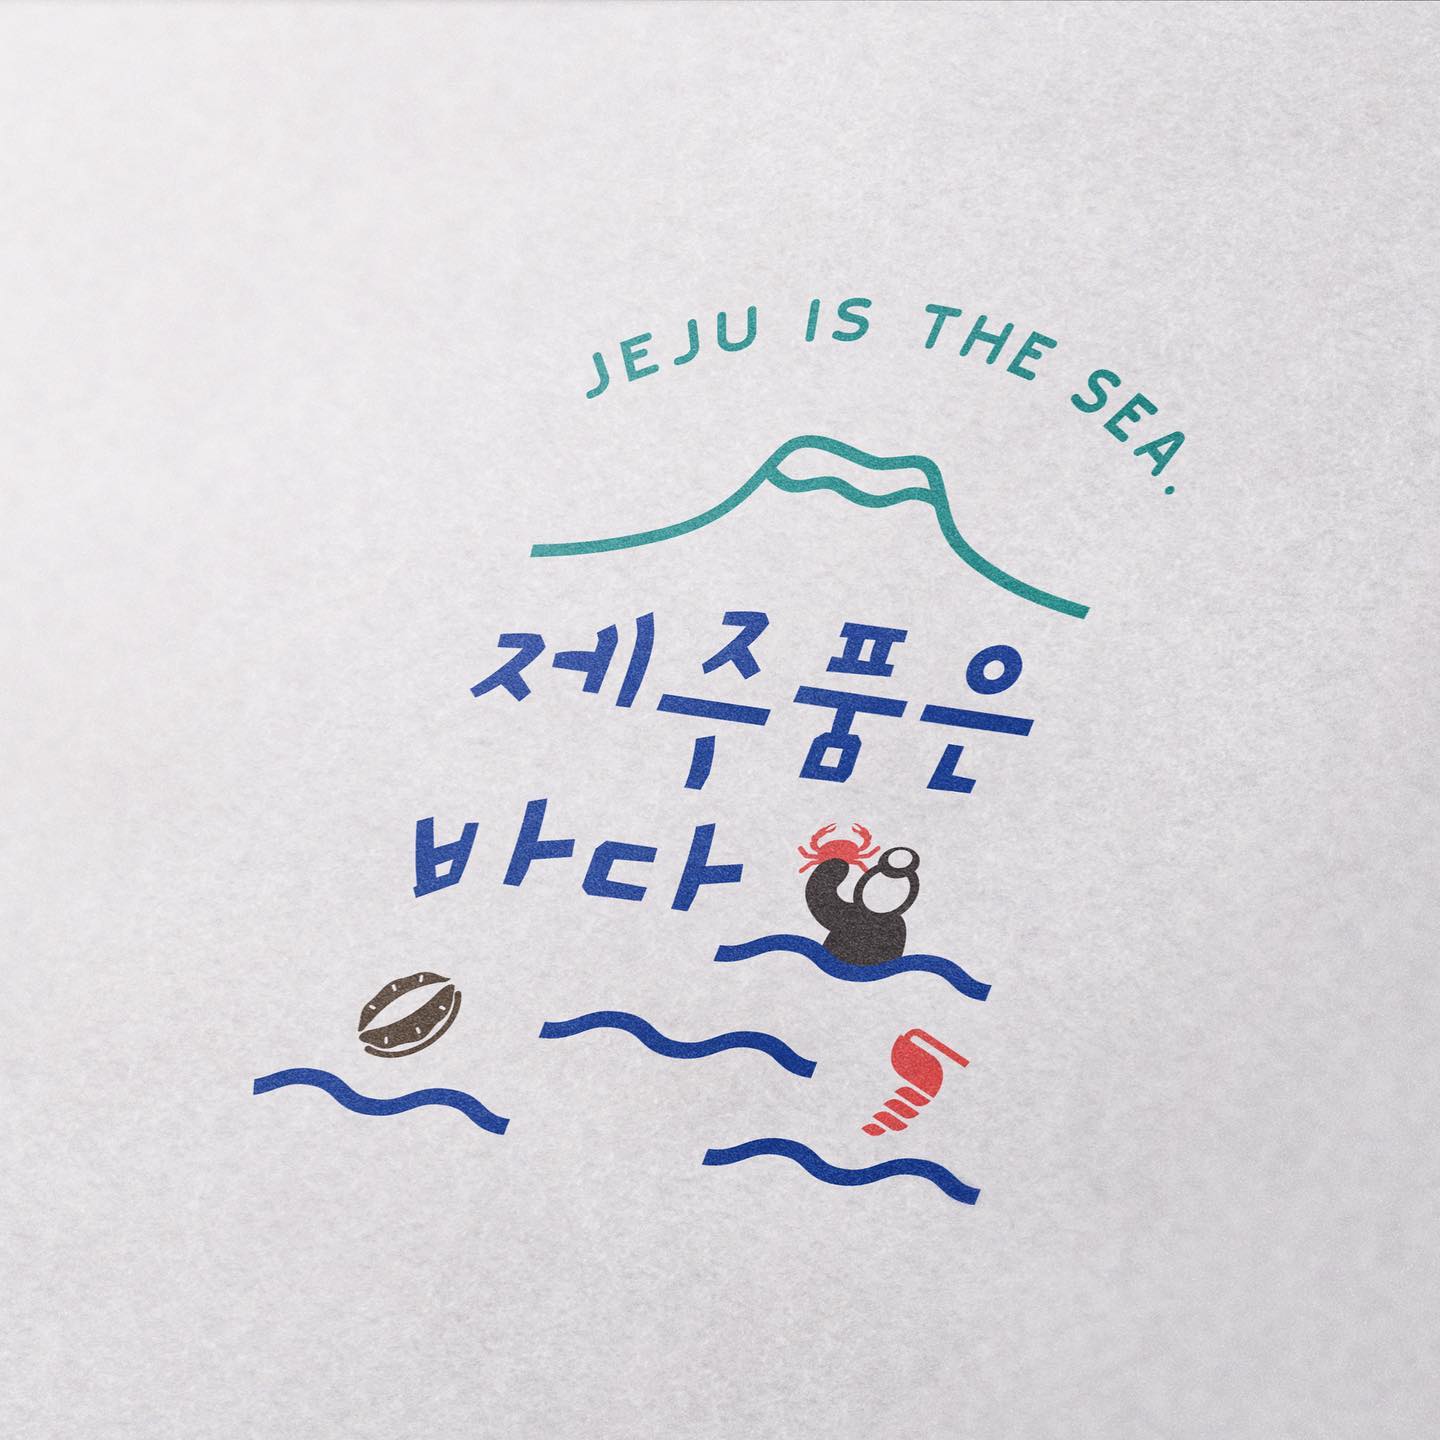 JEJU IS THE SEA.
제주품은
바다